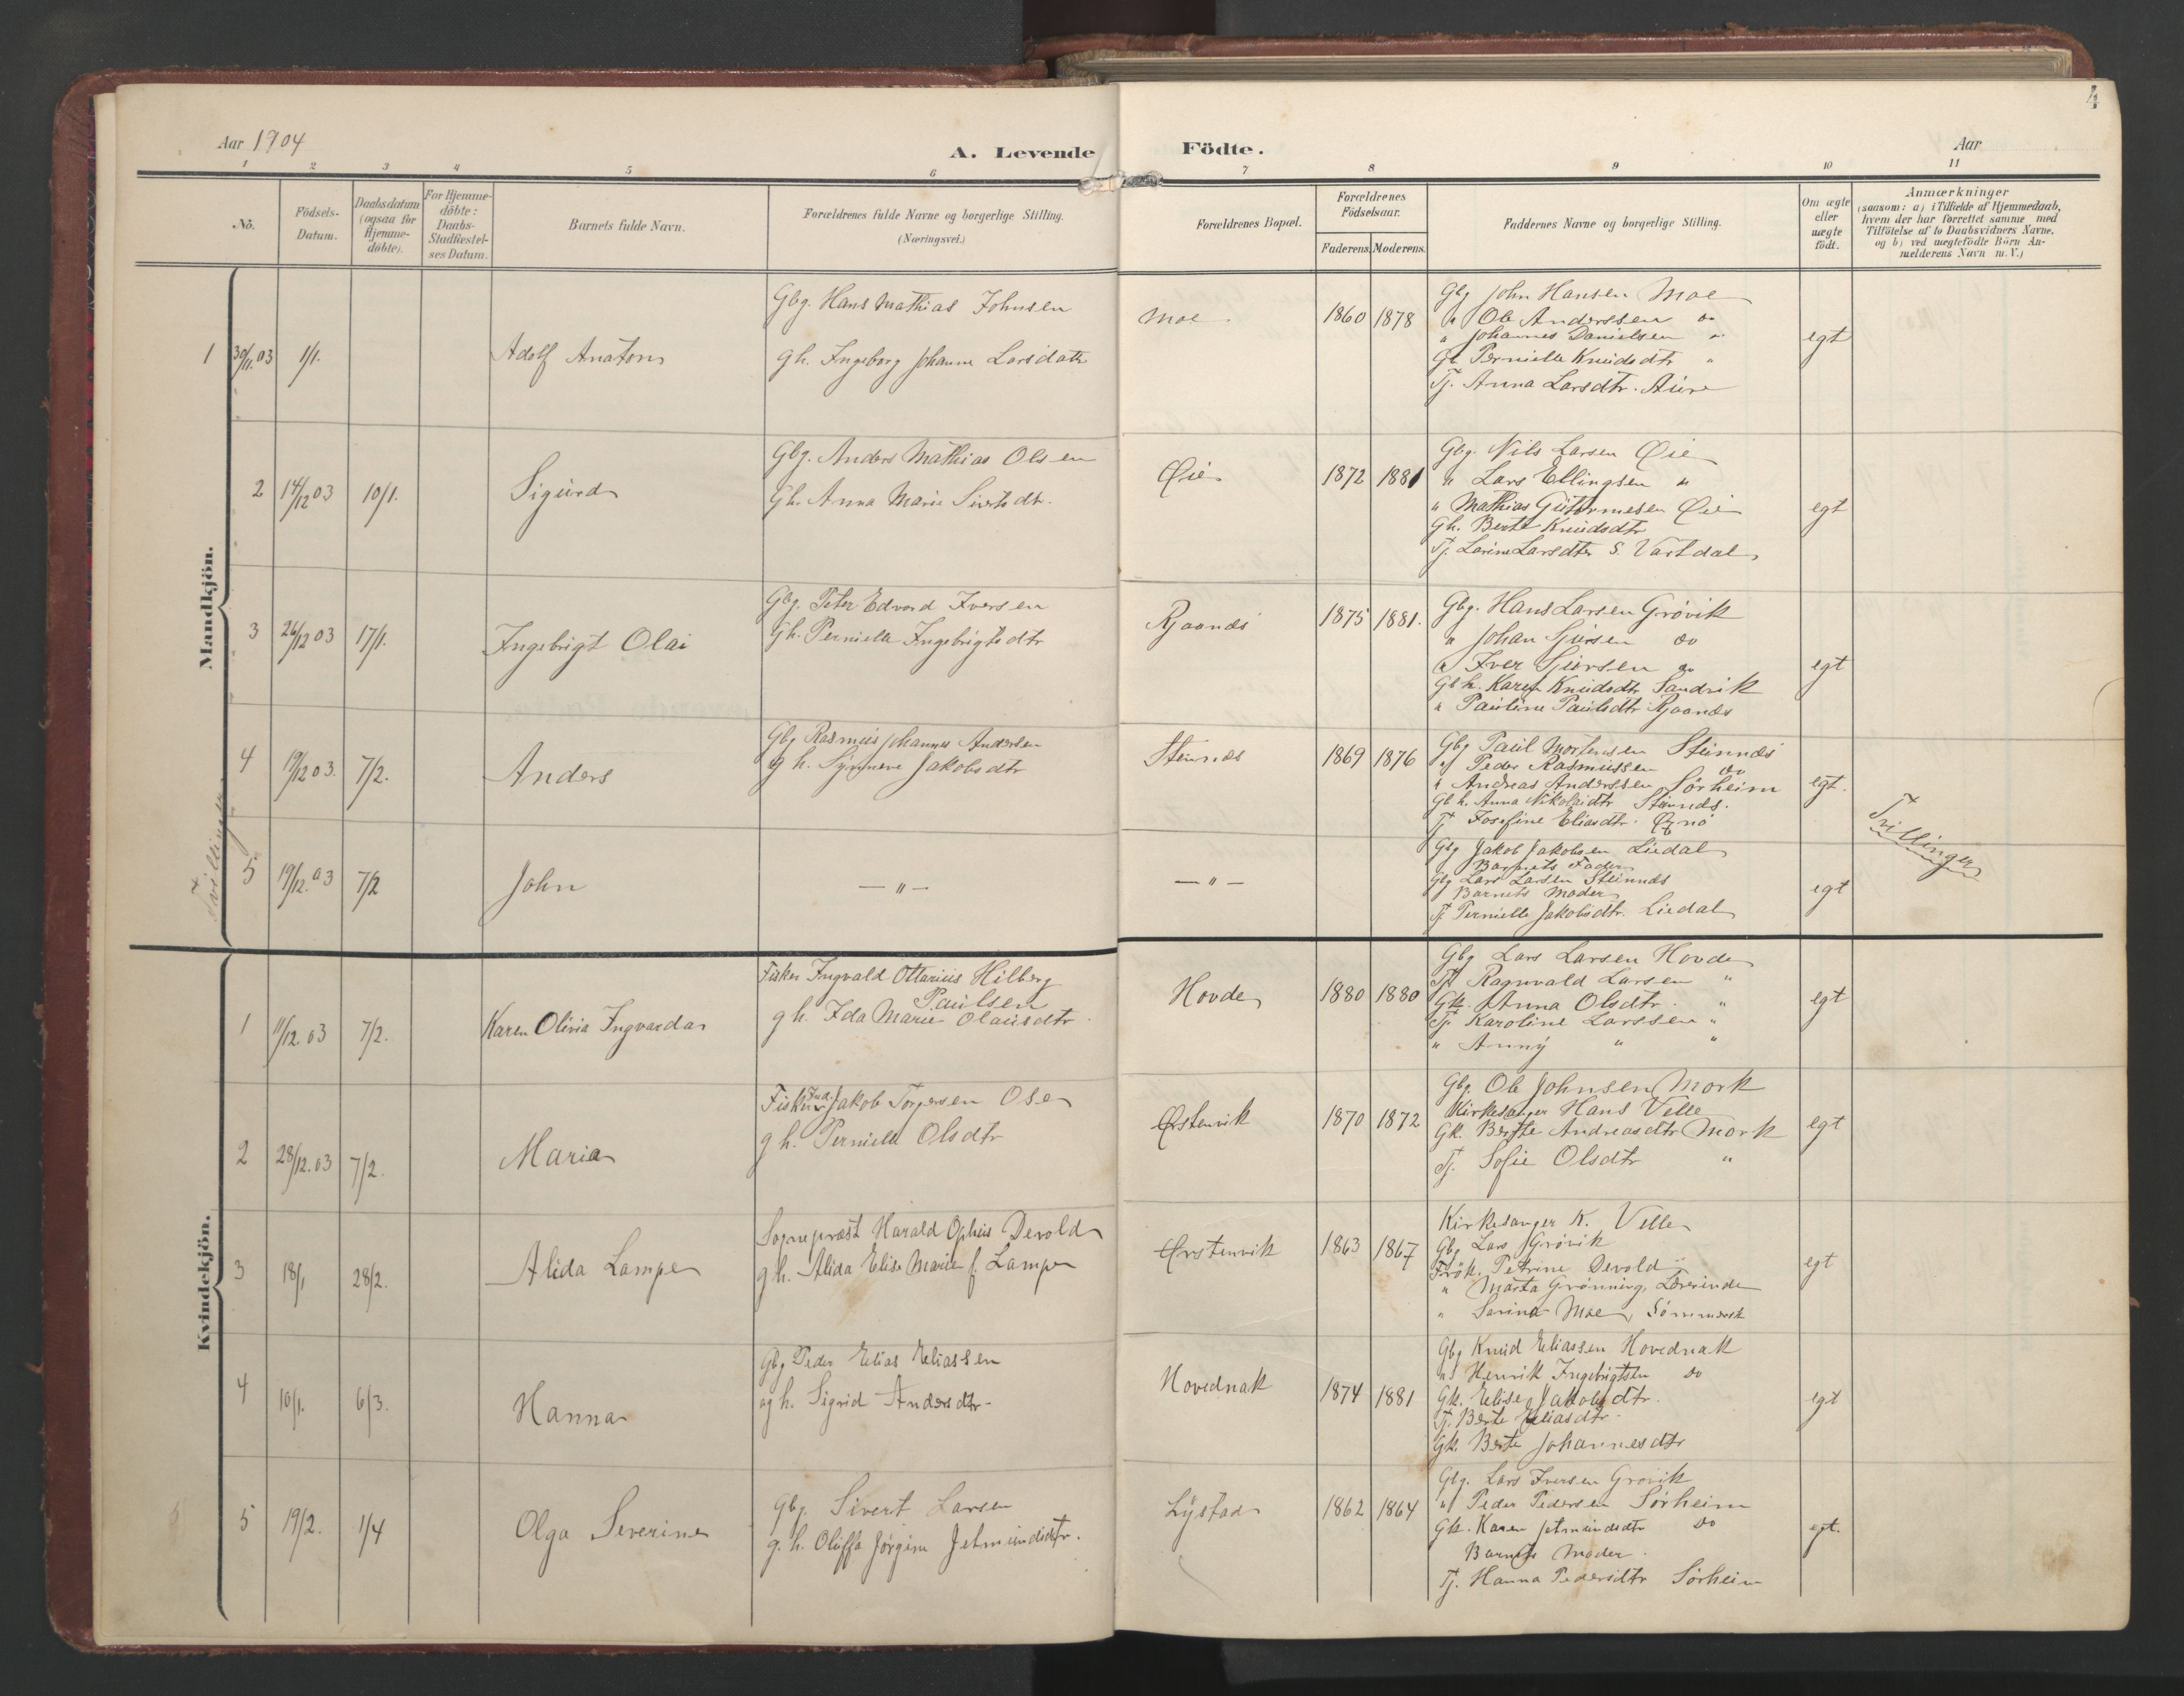 4
Aar 1904
A. Levende Födte.
Aar
1 2 3 4 5 6 7 8 9 10 11
No.
Födsels-Datum.
Daabsdatum (ogsaa for Hjemme-döbte).
For Hjemme-döbte: Daabs-Stadfæstel-ses Datum.
Barnets fulde Navn.
Forældrenes fulde Navne og borgerlige Stilling. (Næringsvei.)
Forældrenes Bopæl.
Forældrenes Födselsaar.
Faderens. Moderens.
Faddernes Navne og borgerlige Stilling.
Om ægte eller uægte födt.
Anmærkninger (saasom: a) i Tilfælde af Hjemmedaab, hvem der har forrettet samme med Tilföielse af to Daabsvidners Navne, og b) ved uægtefödte Börn An-melderens Navn m. V.)
Mandkjön.
1 30/11.03 1/1. Adolf Anaton
Gbg. Hans Mathias Johnsen
gh. Ingeborg Johanne Larsdatr
Moe 1860 1878
Gbg John Hansen Moe
" Ole Anderssen do
" Johannes Danielsen "
Gk Pernille Knudsdtr "
Tj. Anna Larsdtr. Aure
egt
2 14/12 03 10/1. Sigurd
Gbg. Anders Mathias Olsen
Gh. Anna Marie Sivertsdtr.
Øie 1872 1881
Gbg. Nils Larsen Øie
" Lars Ellingsen "
" Mathias Guttormesen Øie
Gh. Berte Knudsdtr
Tj. Larine Larsdtr S. Vartdal
egt
3 26/12 03 17/1. Ingebrigt Olai
Gbg. Peter Edvard Iversen
Gh. Pernielle Ingebrigtsdtr
Rjaanes 1875 1881.
Gbg. Hans Larsen Grøvik
" Johan Sjursen do
" Iver Sjursen do
Gbk. Karen Knudsdtr Sandvik
" Pauline Paulsdtr Rjaanes
egt
4 19/12 03. 7/2. Anders
Gbg Rasmus Johannes Andersen
g h. Synneve Jakobsdtr
Steinnes 1869 1876
Gbg Paul Mortensen Steinnes
" Peder Rasmussen do
" Andreas Anderssen Sørheim
Gbk. Anna Nikolaidtr Steinnes.
Tj Josefine Eliasdtr.
egt.
Tvillinger
Tvillinger
5 19/12.03 7/2 John
— " —
— " —
Gbg Jakob Jakobsen Liedal
Barnets Fader
Gbg Lars Larsen Steinnes
Barnets Moder
Tj. Pernielle Jakobsdtr. Liedal
egt
Kvindekjön.
1 11/12.03 7/2. Karen Olivia Ingvarda
Fisker Ingvald Ottarius Hilberg
Paulsen
g h. Ida Marie Olausdtr.
Hovde 1880 1880
Gbg Lars Larsen Hovde
Tj. Ragnvald Larsen "
Gk. Anna Olsdtr. "
Tj. Karoline Larssen "
" Anny " "
egt
2 28/12.03 7/2. Maria
Fisker Jakob Torgersen Ose
g h. Pernielle Olsdtr
Ørstenvik 1870 1872
Gbg Ole Johnsen Mork
Kirkesanger Hans Velle
Gk. Berte Andreasdtr Mork
Tj. Sofie Olsdtr "
egt
3 18/1 28/2. Alida Lampe
Sogneprest Harald Ophus Devold
g h. Alida Elise Marie f. Lampe
Ørstenvik 1863 1867
Kirkesanger K. Velle
Gbg Lars Grøvik
Frök. Petrine Devold
" Marta Grønning, Lærerinde
" Sarina Moe,
egt
4 10/1. 6/3. Hanna
Gbg Peder Elias Eliassen
og h. Sigrid Andersdtr.
Hovednak 1874 1881
Gbg Knud Eliassen Hovednak
" Henrik Ingebrigtsen do
Gk. Elise Jakobsdtr.
Tj. Berte Eliasdtr.
Gk. Berte Johannesdtr
egt
5 19/2. 1/4 Olga Severine
Gbg. Sivert Larsen
g. h. Oluffa Jørgine Jetmundsdtr.
Lystad 1862 1864
Gbg. Lars Iversen Grøvik
" Peder Pedersen Sørheim
Gk. Karen Jetmundsdtr do
Barnets Moder.
Tj. Hanna Pedersdtr Sørheim
egt.